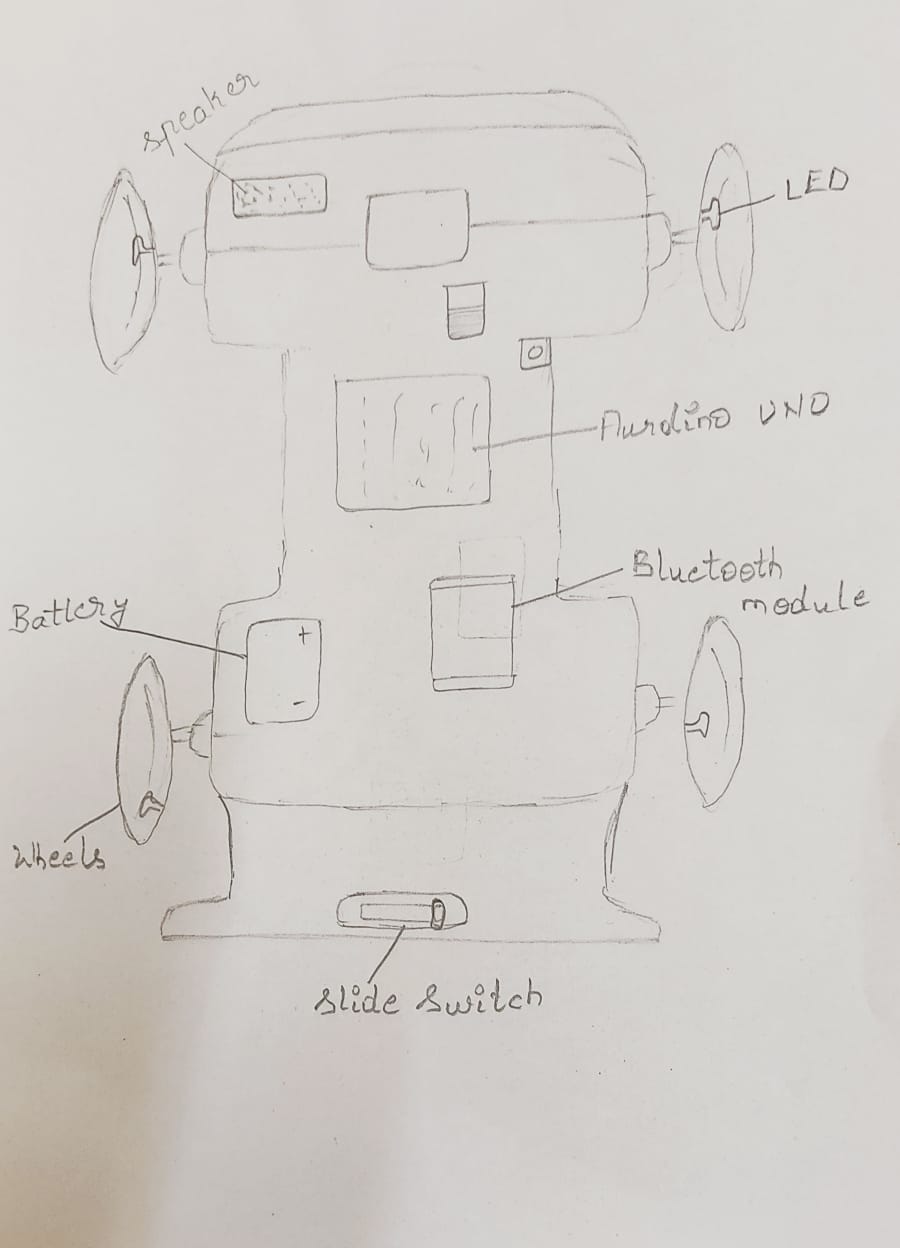 speaker
LED
Aurdino UNO
Bluetooth
module
Battery
+
-
Wheels
Slide Switch